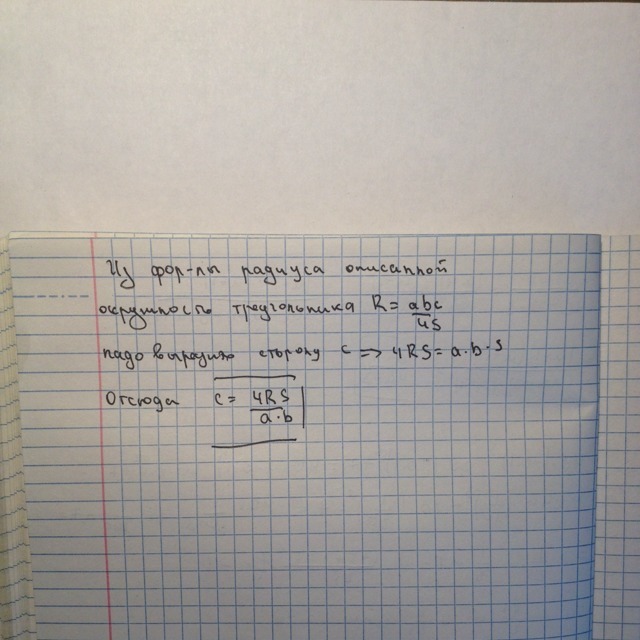 Из фор-лы радиуса описанной
окружность треугольника R = abc/4s
надо выразить сторону c => 4RS = a·b·s
Отсюда c = 4RS/a·b